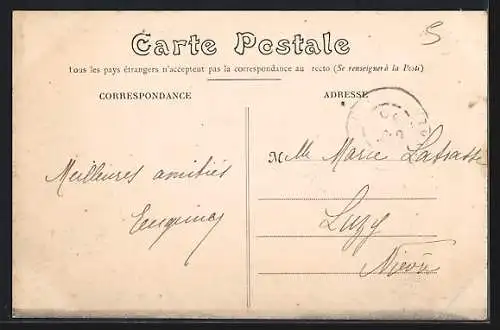 5
Carte Postale
Tous les pays étrangers n'acceptent pas la correspondance au recto (Se renseigner à la Poste)
CORRESPONDANCE
ADRESSE
Meilleures amitiés
Mlle Marie
Luzy
Nièvre